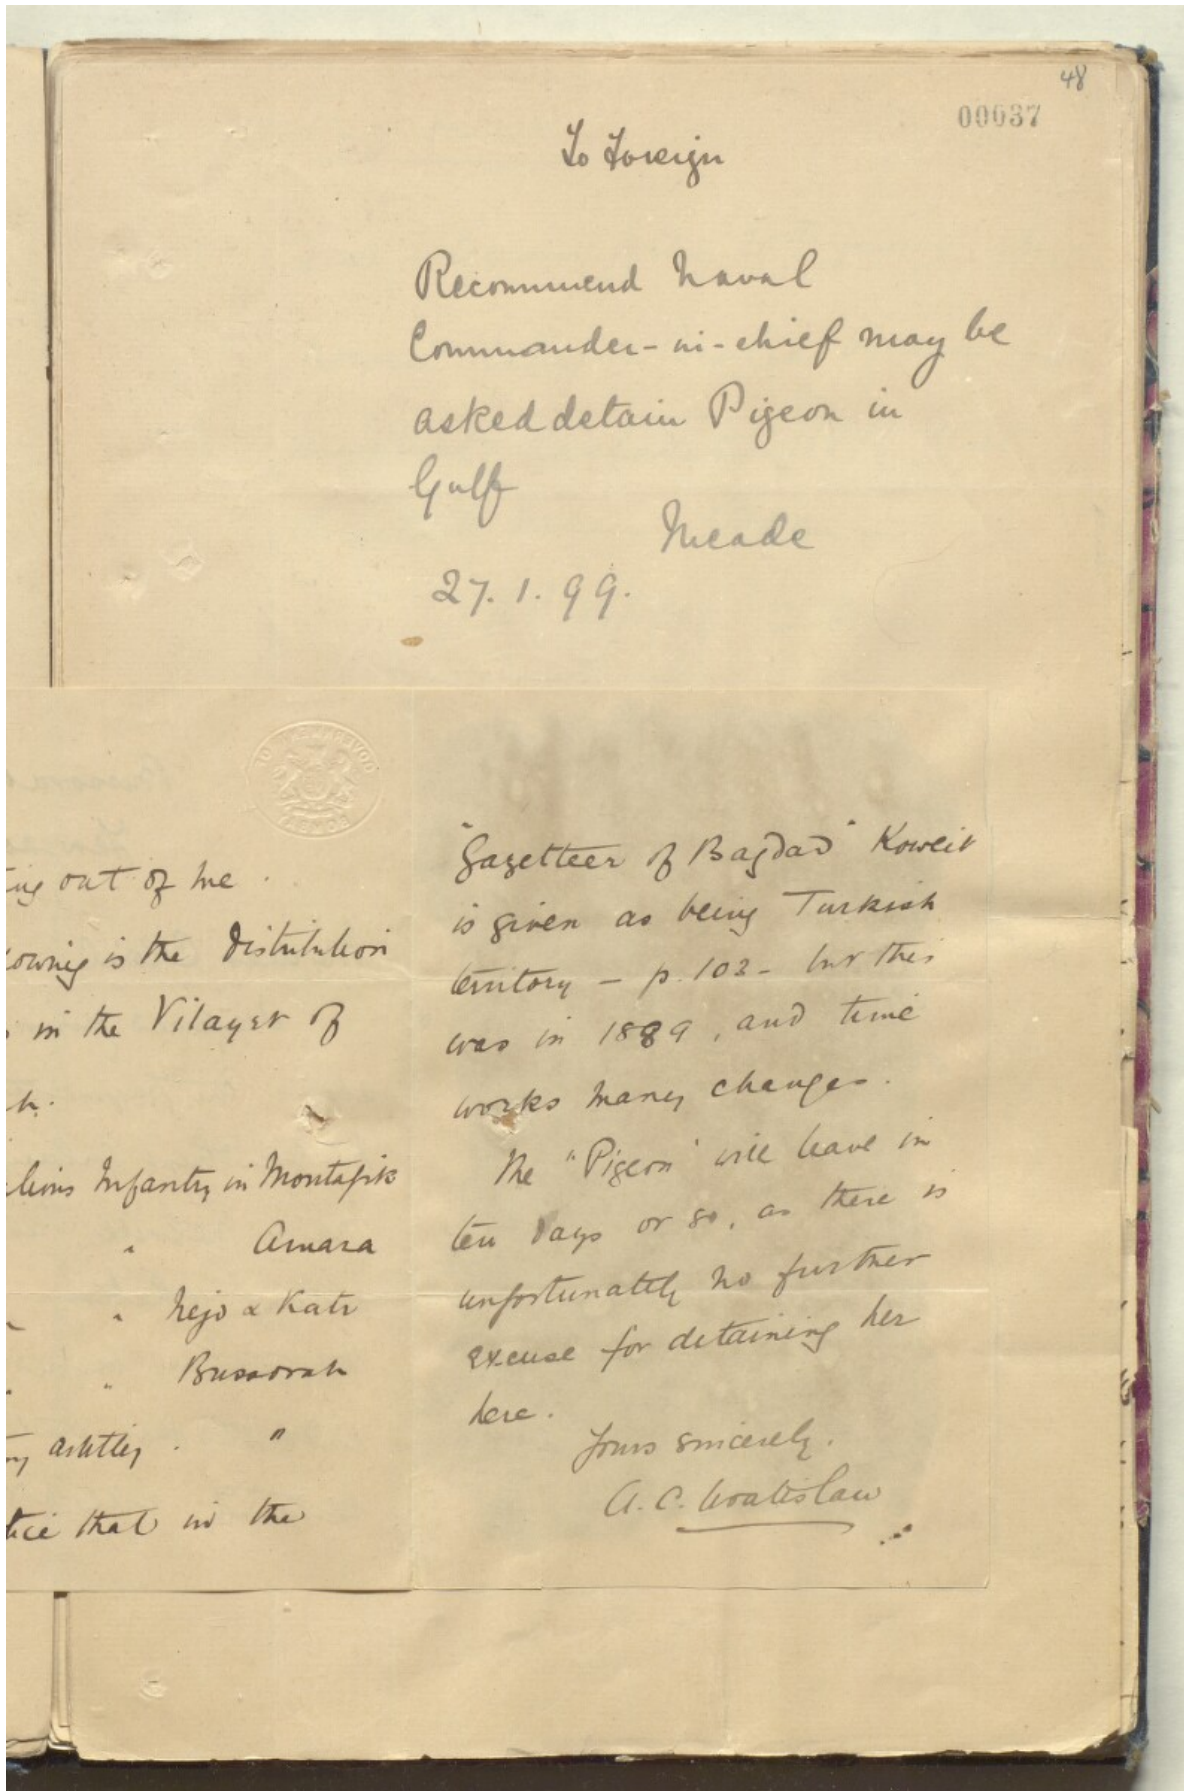 48
00037
To Foreign
Recommend Naval
Commander-in-chief may be
asked detain Pigeon in
Gulf
Meade
27.1.99.
ing out of me.
owing is the distribution
in the Vilayet of
h.
lions Infantry in Montafik
" Amara
" Nejd & Katr
" " Bussorah
artley . "
tice that in the
"Gazetteer of Bagdad" Koweit
is given as being Turkish
territory - p. 103 - but this
was in 1889, and time
works many changes.
The "Pigeon" will leave in
ten days or so, as there is
unfortunately no further
excuse for detaining her
here.
Yours sincerely.
A. C. Wratislaw